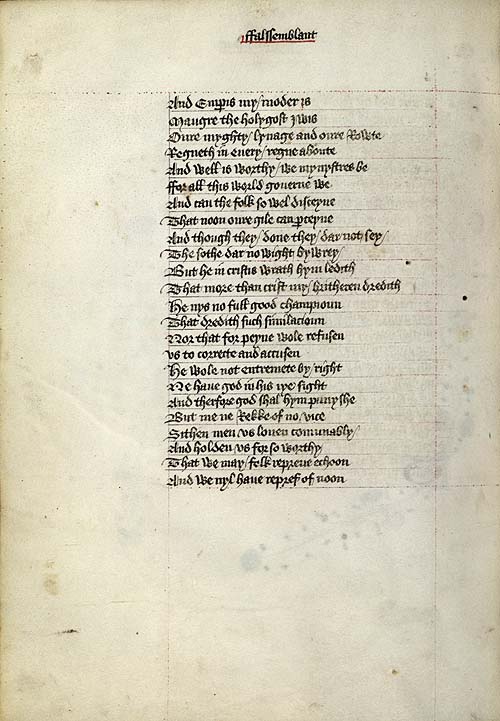 ffalssemblant
And Emp̲is my / moder is
Maugre the holygost ywis
Oure myghty / lynage and oure Rowte
Regneth in euery / regne aboute
And well is worthy / we mynystres be
ffor all this world gouerne we
And can the folk so wel disceyue
That noon oure gile can ꝑceyue
And though they / done they / dar not sey /
The sothe dar no wight bywrey /
But he in cristis wrath hym ledith
That more than crist my / britheren dredith
He nys no full good champioun
That dredith such similacioun
Nor that for peyne wole refusen
vs to correcte and accusen
He wole not entremete by / right
Ne haue god in his iye sight
And therfore god shal hym punyshe
But me ne Rekke of no / vice
Sithen men vs louen comunably /
And holden vs for so worthy /
That we may / folk repreue echoon
And we nyl haue repref of noon